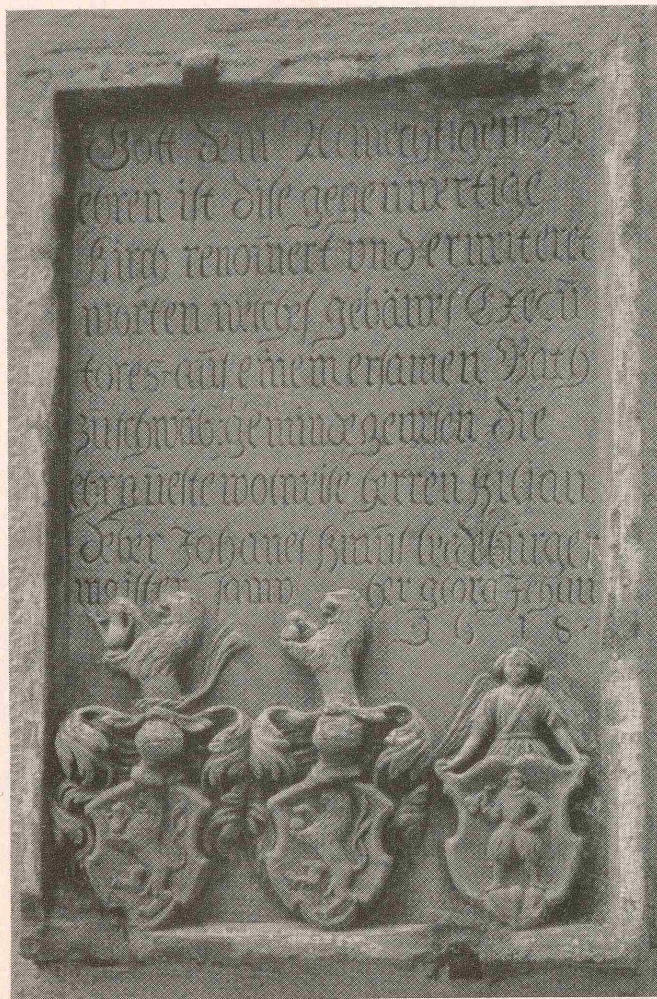 Gott dem Almechtigen zů
ehren ist dise gegenwertige
Kirch renoviert vnd erwiteret
worten welches gebäws Execů
tores aůs einem ersamen Rath
zu schwäb: gemünd gewesen die
ehrnůeste wolweise herren Kilian
Johanes beede bürger
maister her georg